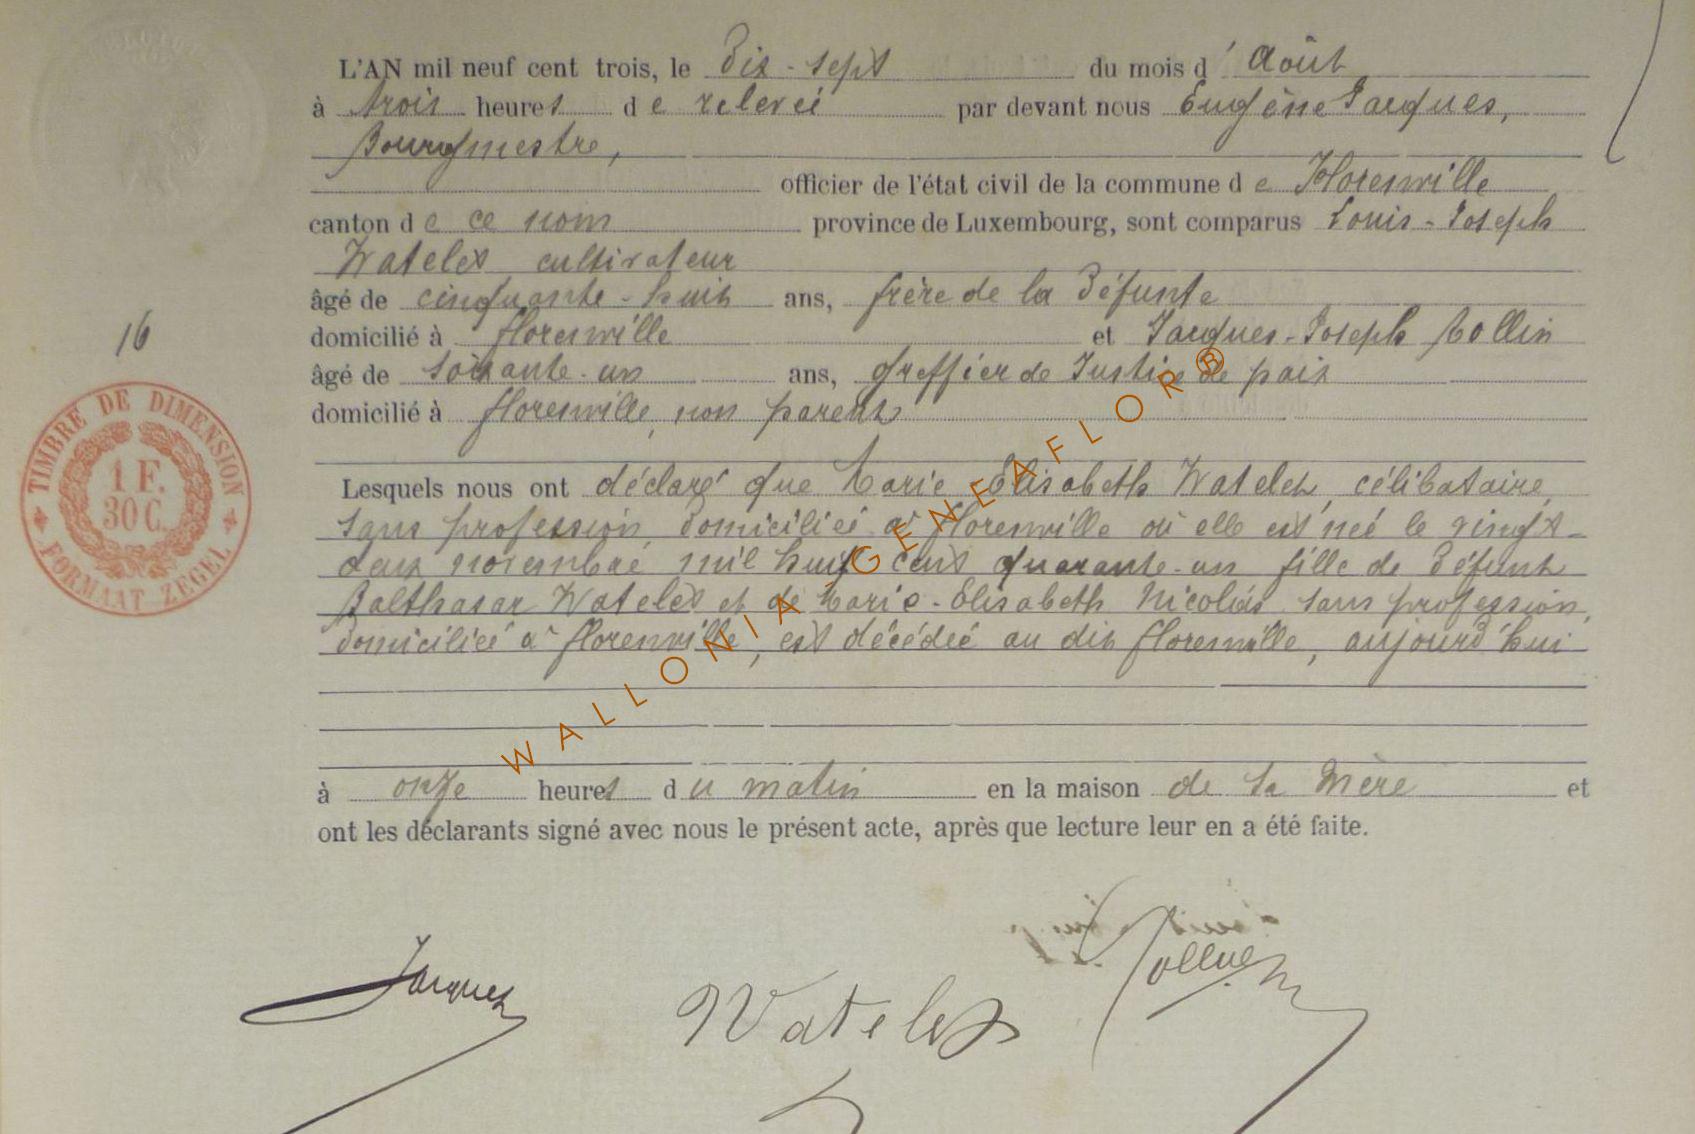 L'AN mil neuf cent trois, le Dix-sept du mois d'Août
à trois heures de relevée par devant nous Eugène Jacques,
Bourgmestre,
officier de l'état civil de la commune de Florenville
canton de ce nom province de Luxembourg, sont comparus Louis-Joseph
Watelet cultivateur
âgé de cinquante-huit ans, frère de la Défunte
domicilié à Florenville et Jacques-Joseph Collin
âgé de soixante-un ans, greffier de Justice de paix
domicilié à Florenville, non parent
Lesquels nous ont déclaré que Marie Elisabeth Watelet, célibataire,
sans profession, domiciliée à Florenville où elle est née le vingt-
deux novembre mil huit cent quarante-un fille de Défunt
Balthasar Watelet et de Marie-Elisabeth Nicolas sans profession,
domiciliée à Florenville, est décédée au dit Florenville, aujourd'hui
à onze heures du matin en la maison de sa Mère et
ont les déclarants signé avec nous le présent acte, après que lecture leur en a été faite.
16
TIMBRE DE DIMENSION
1 F.
30 C.
FORMAAT ZEGEL
Jacques Watelet Collin
WALLONIA - GENEAFLOR®